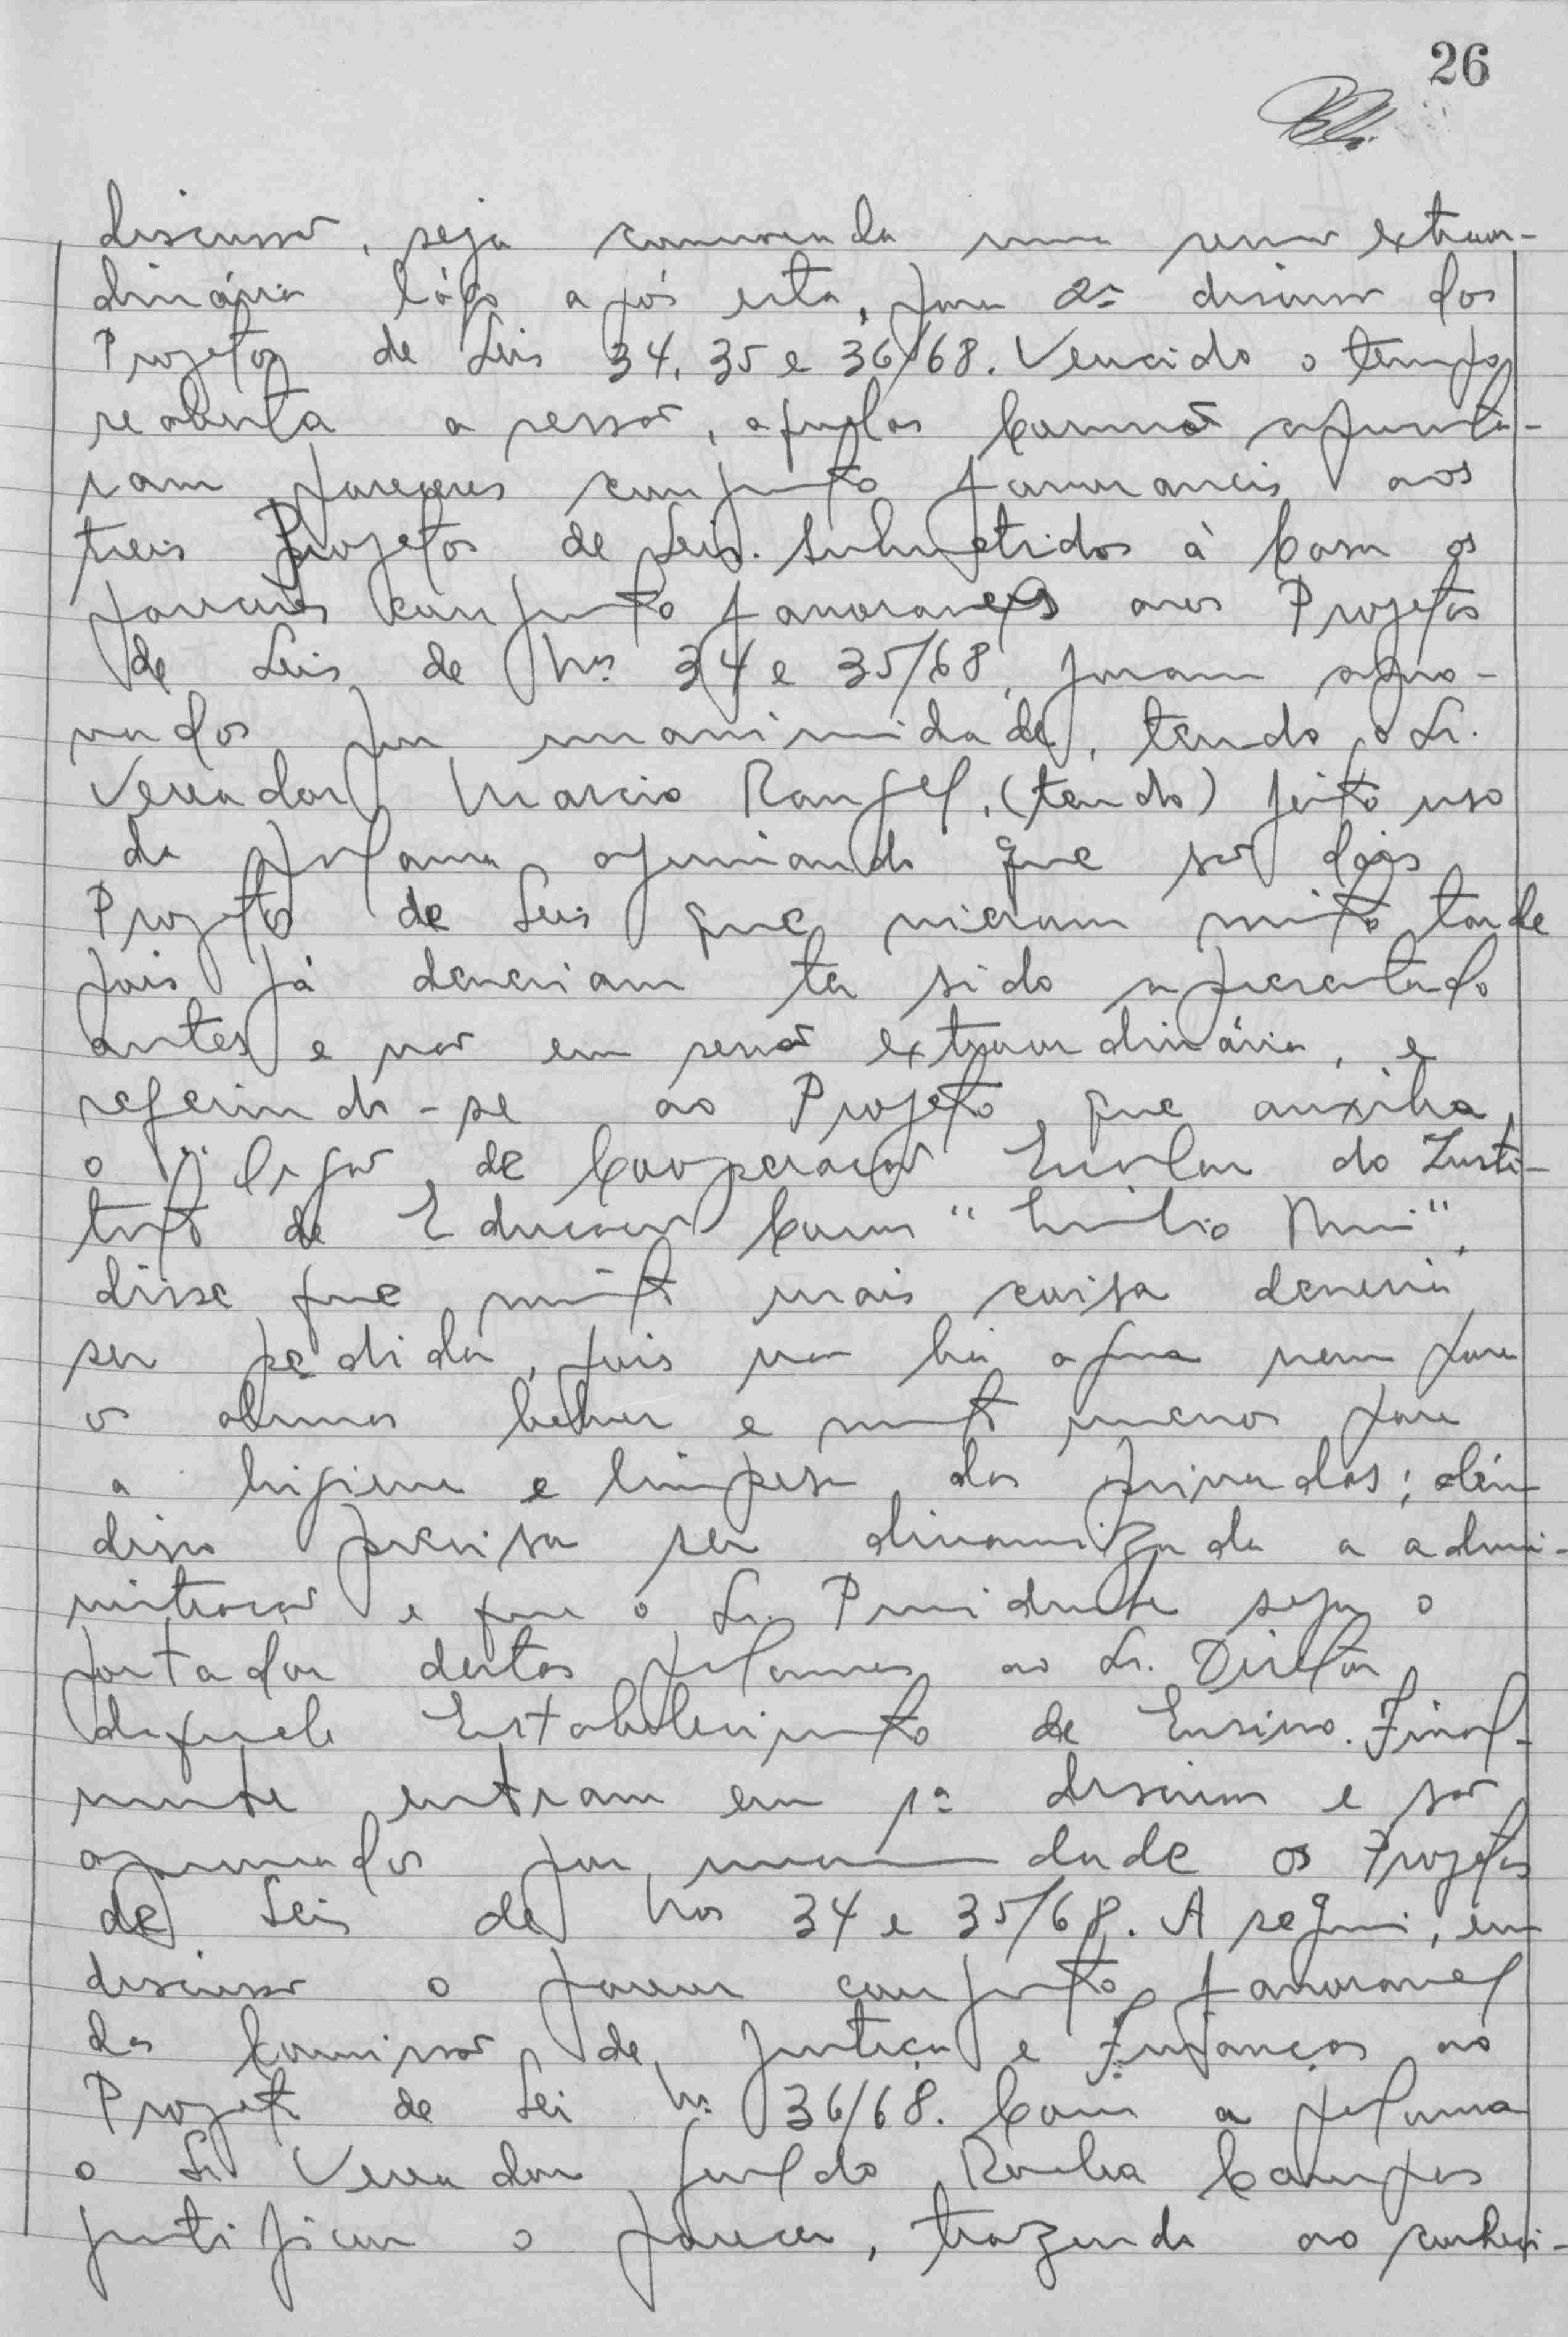 26
discussão, seja convocada uma sessão extraor-
dinária lógo após esta, para 2ª discussão dos
Projetos de Leis 34, 35 e 36/68. Vencido o tempo,
reaberta a sessão, aquelas Comissão apresenta-
ram pareceres conjunto favoraveis aos
treis Projetos de Leis. Submetidos à Casa os
pareceres conjunto favoraveis aos Projetos
de Leis de Nos. 34 e 35/68, foram apro-
vados por unanimidade, tendo o Sr.
Vereador Marcio Rangel, (tendo) feito uso
da palavra opiniando que são dois
Projetos de Leis que vieram muito tarde
pois já deveriam ter sido apresentado
antes e não em sessão extraordinária, e
referindo-se ao Projeto que auxilia
o Orgão de Cooperação Escolar do Insti-
tuto de Educação
disse que muito mais coisa deveria
ser pedida, pois não há agua nem para
os alunos beber e muito menos para
a higiene e limpesa das privadas; além
disso precisa ser dinamizada a admi-
nistração e que o Sr. Presidente seja o
portador destas palavras ao Sr. Diretor
daquele Estabelecimento de Ensino. Final-
mente entram em 1ª discussão e são
aprovados por unanimidade os Projetos
de Leis de Nos 34 e 35/68. A seguir, em
discussão o parecer conjunto favoravel
da Comissão de Justiça e Finanças ao
Projeto de Lei Nº 36/68. Com a palavra
o Sr. Vereador Geraldo Rocha Campos
justificou o parecer, trazendo ao conheci-